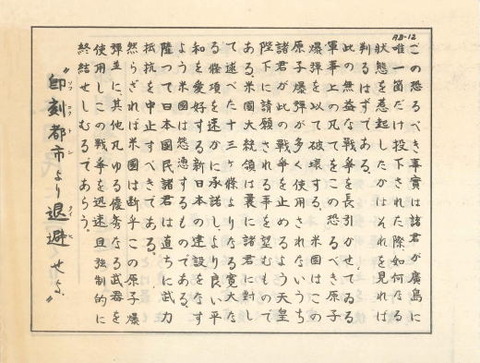 AB-12
この恐るべき事實は諸君が廣島に
唯一箇だけ投下された際、如何なる
狀態を惹起したかはそれを見れば
判るはずである。
此の無益な戦争を長引かせてゐる
軍事上の凡てをこの恐るべき原子
爆弾を以て破壊する。米國はこの
原子爆弾が多く使用されないうち
諸君が此の戦争を止めるよう天皇
陛下に請願される事を望むもので
ある。米國大統領は曩に諸君に対し
て述べた十三ヶ條よりなる寛大な
る條項を速かに承諾しより良い平
和を愛好する新日本の建設をなす
よう米國は慫慂するものである。
隨って日本國民諸君は直ちに武力
抵抗を中止すべきである。
然らざれば米國は断乎この原子爆
弾並に其他凡ゆる優秀なる武器を
使用しこの戦争を迅速且強制的に
終結せしむるであらう。
"即刻都市より退避せよ"